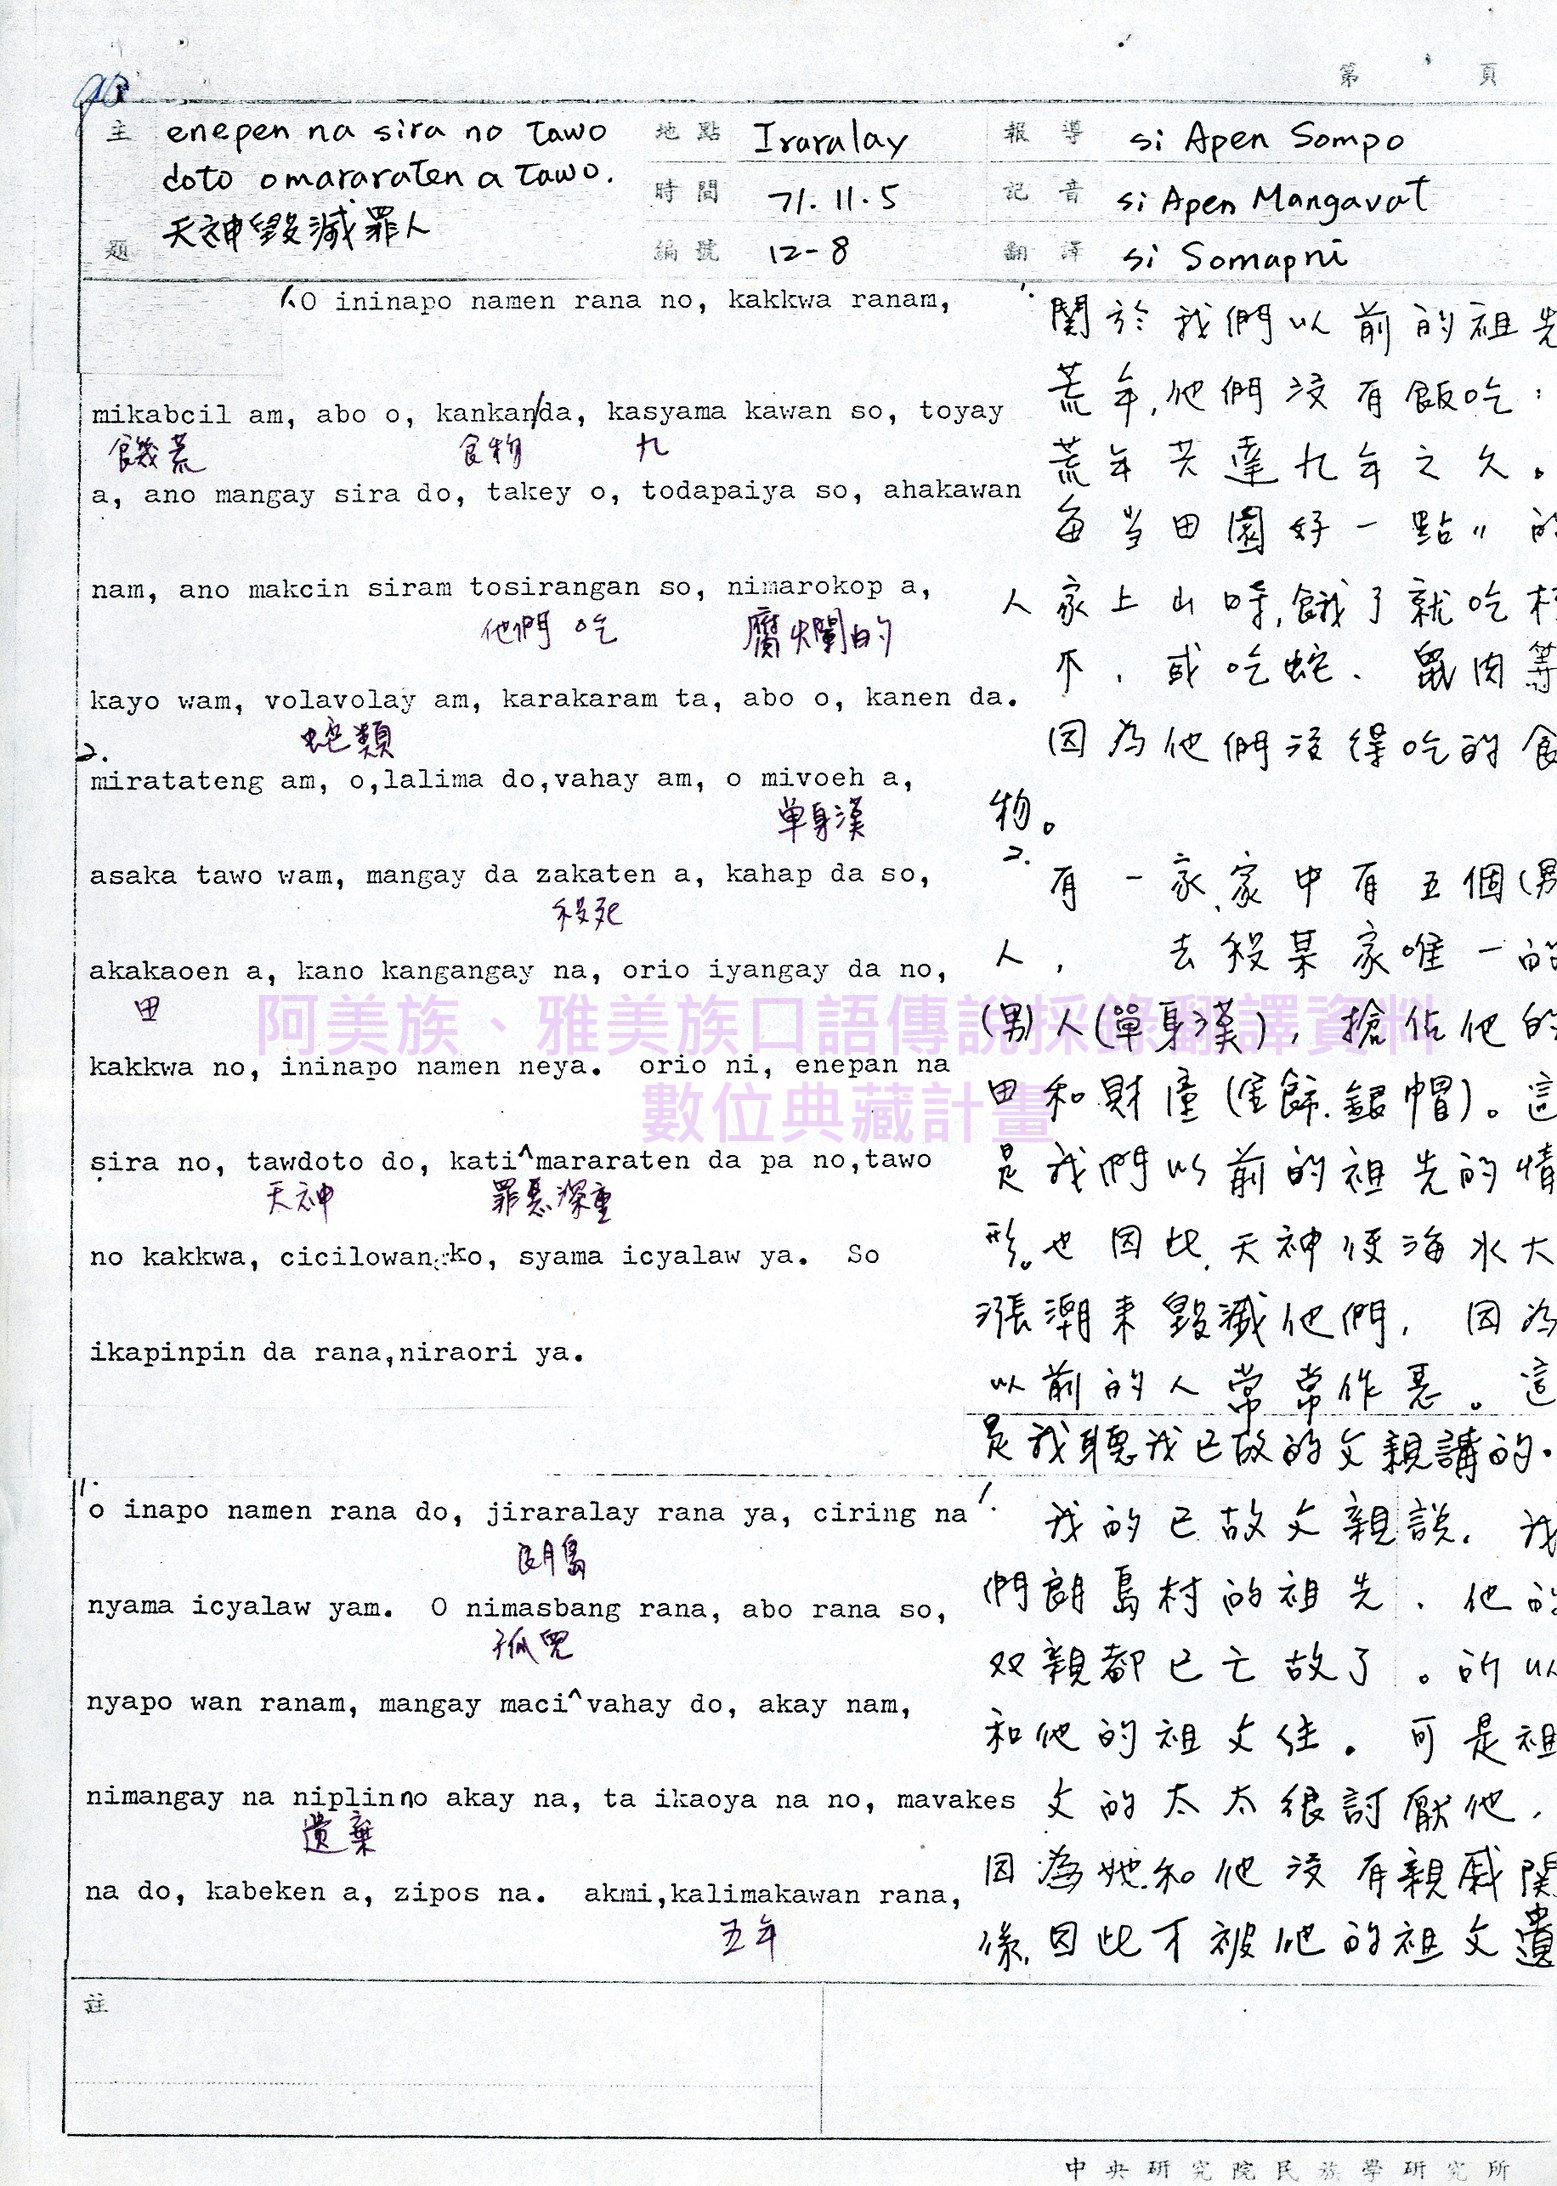 第 頁
主題 enepen na sira no tawo
doto omararaten a tawo.
天神毀滅罪人
地點 Iraralay
時間 71.11.5
編號 12-8
報導 si Apen Sompo
記音 si Apen Mangavat
翻譯 si Somapni
1.O ininapo namen rana no, kakkwa ranam,
mikabcil am, abo o, kankan/da, kasyama kawan so, toyay
饑荒 食物 九
a, ano mangay sira do, takey o, todapaiya so, ahakawan
nam, ano makcin siram tosirangan so, nimarokop a,
他們吃 腐爛的
kayo wam, volavolay am, karakaram ta, abo o, kanen da.
蛇類
2.
miratateng am, o,lalima do,vahay am, o mivoeh a,
單身漢
asaka tawo wam, mangay da zakaten a, kahap da so,
殺死
akakaoen a, kano kangangay na, orio iyangay da no,
田
kakkwa no, ininapo namen neya. orio ni, enepan na
sira no, tawdoto do, kati^mararaten da pa no,tawo
天神 罪惡深重
no kakkwa, cicilowan ko, syama icyalaw ya. So
ikapinpin da rana,niraori ya.
1.
關於我們以前的祖先
荒年,他們沒有飯吃:
荒年共達九年之久。
每當田園好一點〃的
人家上山時,餓了就吃
不,或吃蛇、鼠肉等
因為他們沒得吃的食
物。
2.
有一家,家中有五個(男
人, 去殺某家唯一的
(男)人(單身漢),搶佔他的
田和財產(金飾.銀帽)。這
是我們以前的祖先的情
形。也因此,天神使海水大
漲潮來毀滅他們, 因為
以前的人常常作惡。這
是我聽我已故的父親講的.
1.
o inapo namen rana do, jiraralay rana ya, ciring na
朗島
nyama icyalaw yam. O nimasbang rana, abo rana so,
孤兒
nyapo wan ranam, mangay maci^vahay do, akay nam,
nimangay na niplin no akay na, ta ikaoya na no, mavakes
遺棄
na do, kabeken a, zipos na. akmi,kalimakawan rana,
五年
1.
我的已故父親說. 我
們朗島村的祖先.他的
双親都已亡故了。所以
和他的祖父住。可是祖
父的太太很討厭他,
因為她和他沒有親戚關
係,因此才被他的祖父遺
註
中央研究院民族學研究所
阿美族、雅美族口語傳說採錄翻譯資料
數位典藏計畫